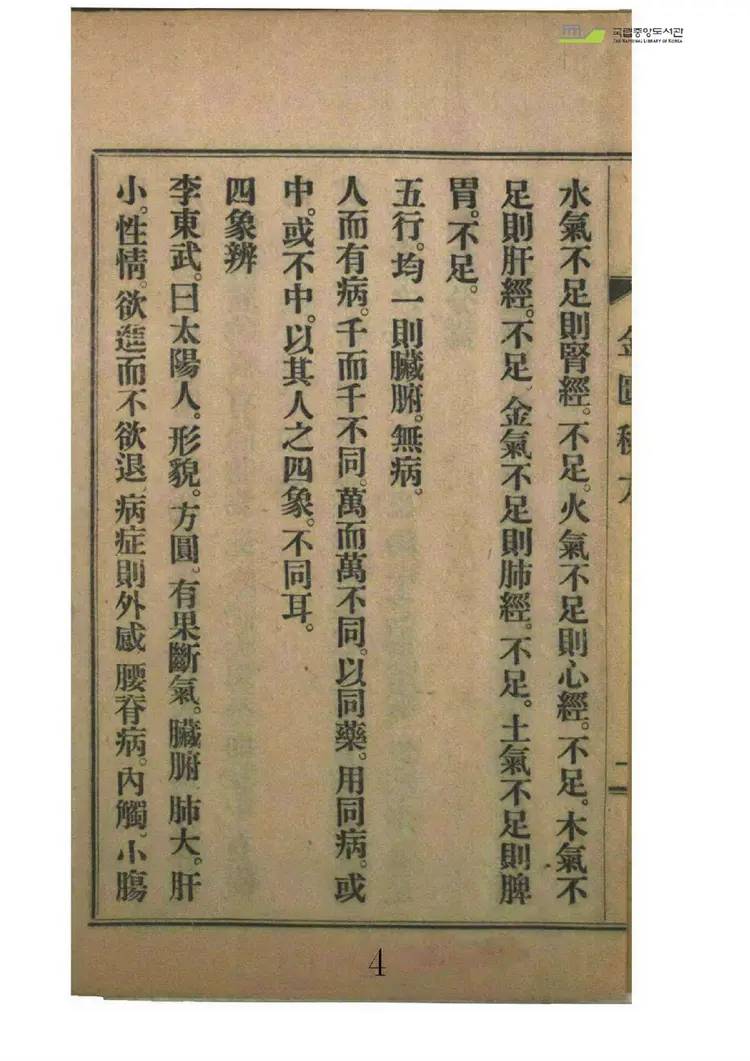 국립중앙도서관
THE NATIONAL LIBRARY OF KOREA
水氣不足則腎經。不足。火氣不足則心經。不足。木氣不
足則肝經。不足。金氣不足則肺經。不足。土氣不足則脾
胃。不足。
五行。均一則臟腑。無病。
人而有病。千而千不同。萬而萬不同。以同藥。用同病。或
中。或不中。以其人之四象。不同耳。
四象辨
李東武。曰太陽人。形貌。方圓。有果斷氣。臟腑 肺大。肝
小。性情。欲進而不欲退 病症則外感 腰脊病。內觸。小膓
4